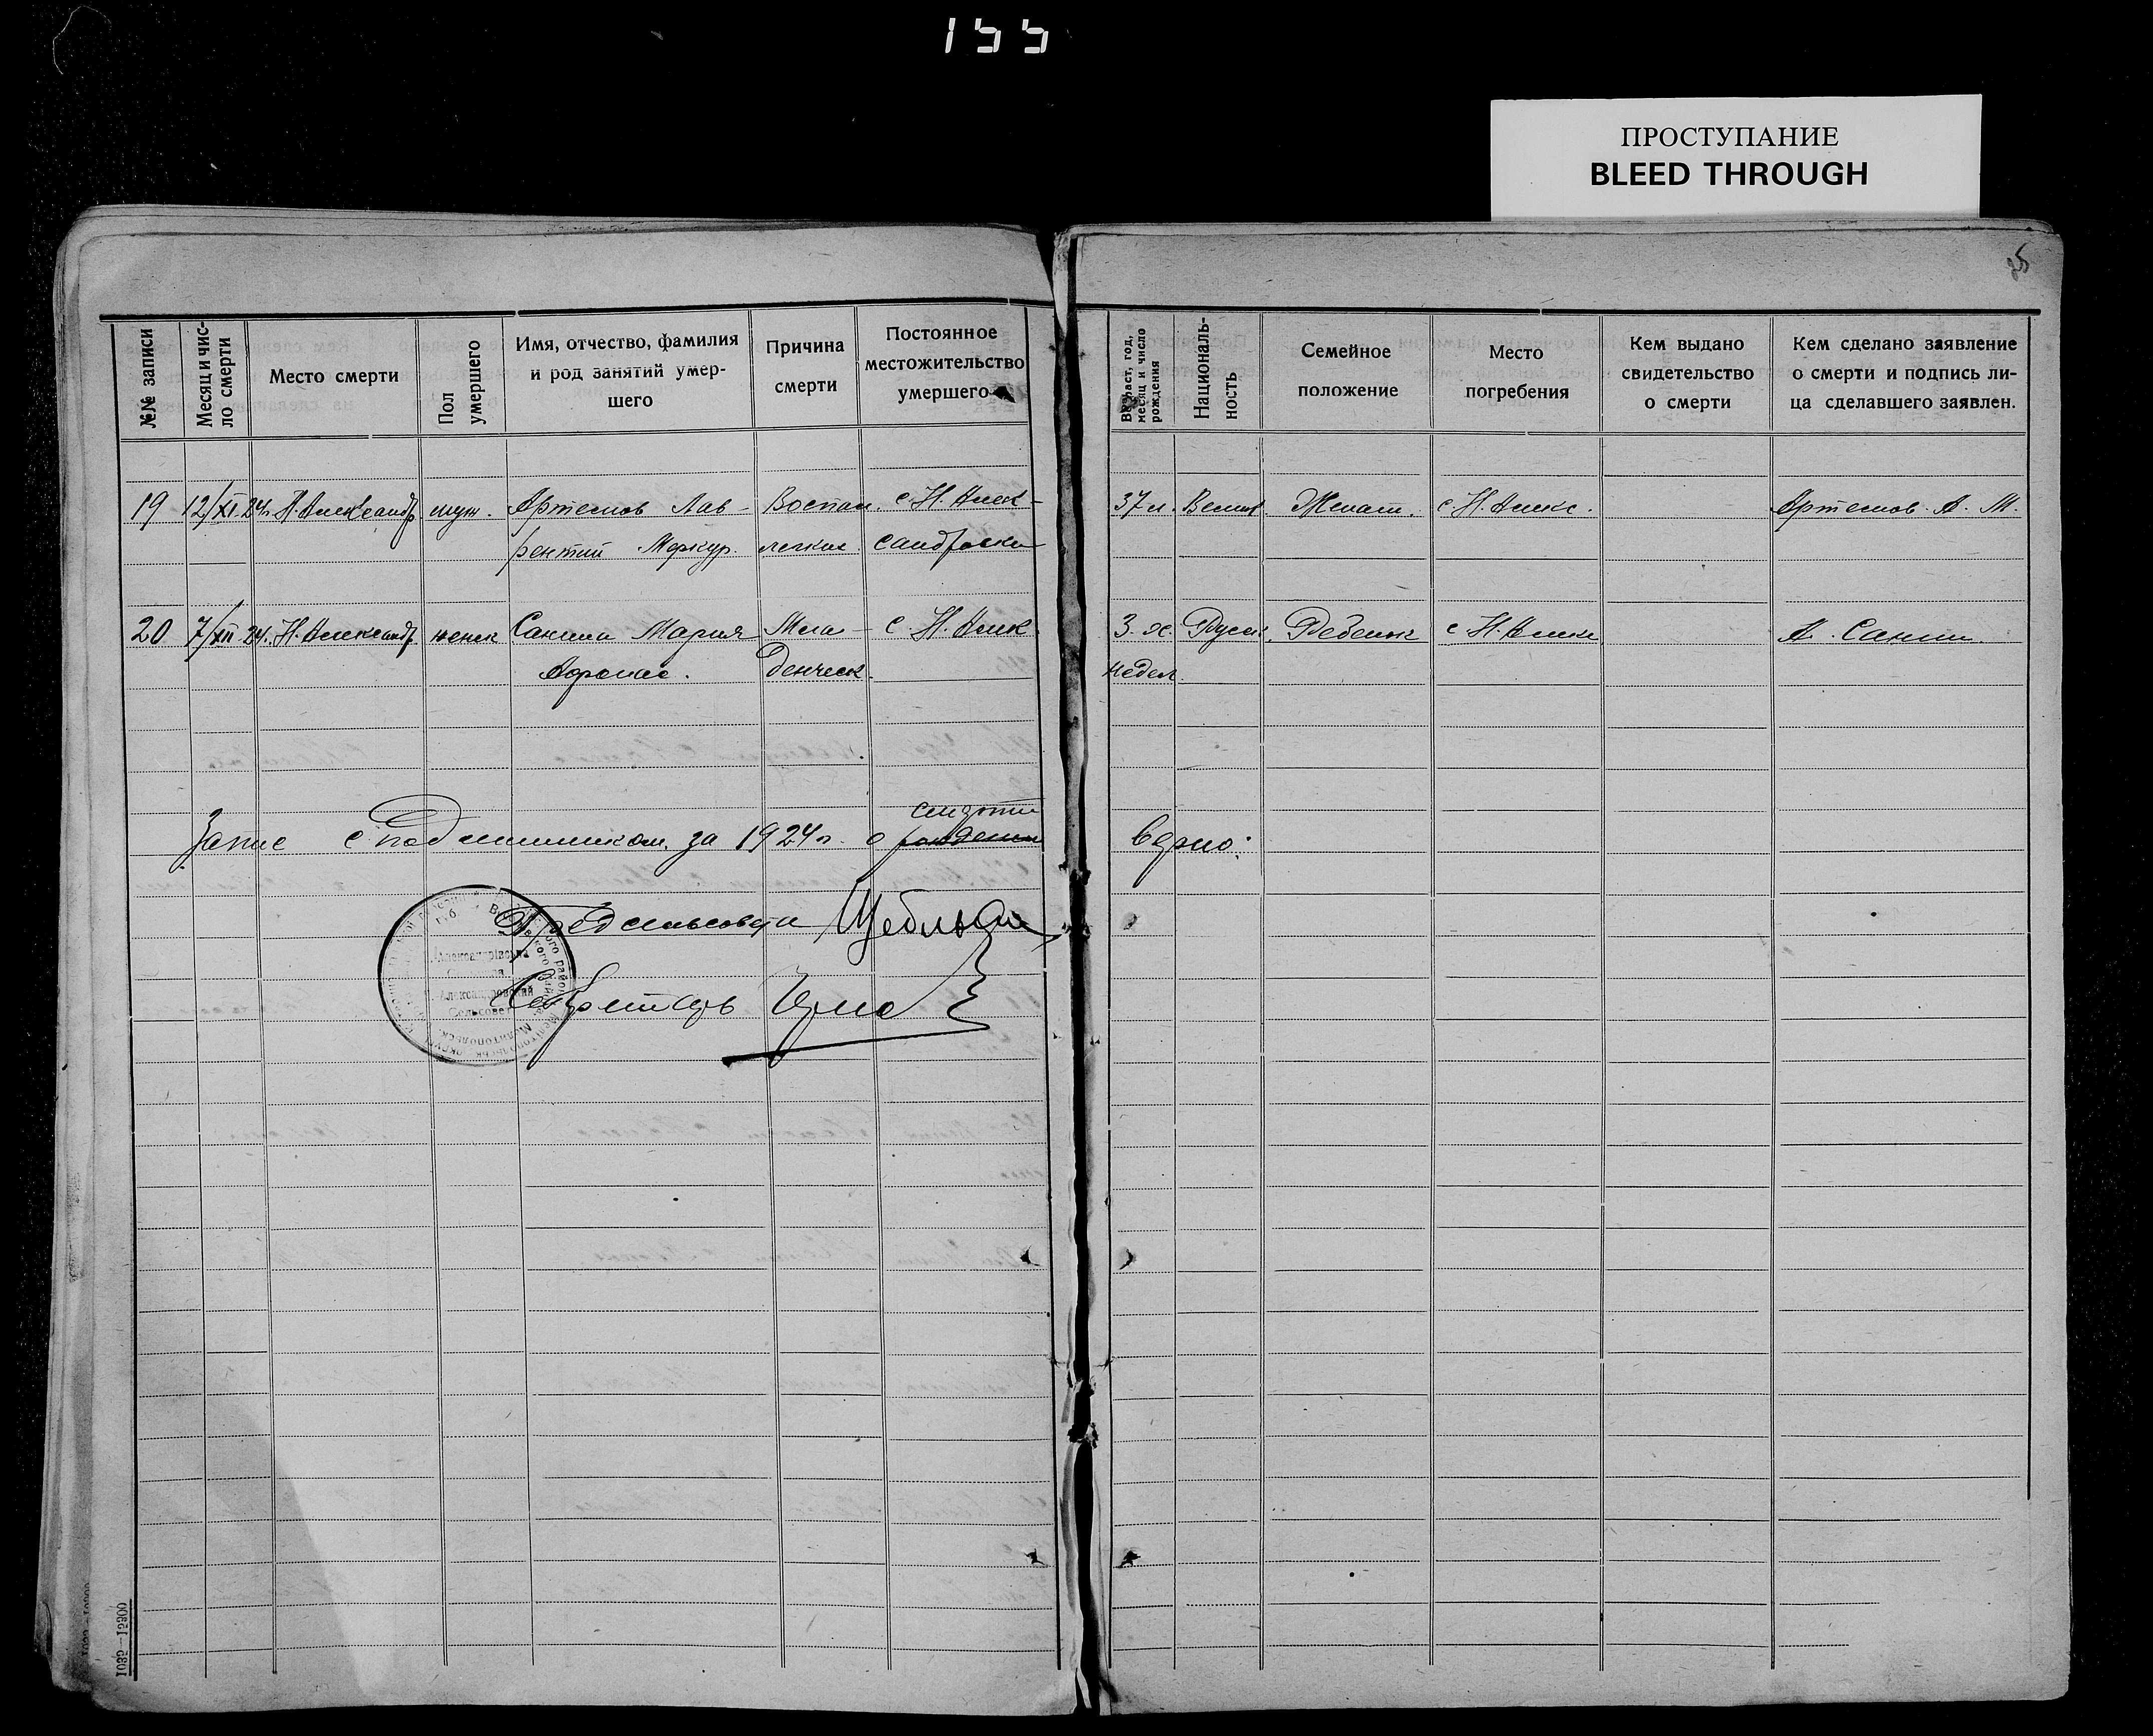 155
ПРОСТУПАНИЕ
BLEED THROUGH
№№ записи
Месяц и чис-
ло смерти
Место смерти
Пол
умершего
Имя, отчество, фамилия
и род занятий умер-
шего
Причина
смерти
Постоянное
местожительство
умершего
Возраст, год,
месяц и число
рождения
Националь-
ность
Семейное
положение
Место
погребения
Кем выдано
свидетельство
о смерти
Кем сделано заявление
о смерти и подпись ли-
ца сделавшего заявлен.
19 12/XI 24г. Н. Александр. муж. Артемов Лав- Воспал. с. Н. Алек- 37 л. Велик. Женат. с. Н. Алекс. Артемов А. М.
рентий Меркур. легких сандровка
20 7/XII 24г. Н. Александр. женск Санина Мария Мла- с. Н. Алек. 3-х Русск. Ребенок с Н. Алекс А. Санин
Афонас. денческ. недел.
смерти
Запис с подлинником за 1924 г. о рождении верно:
Предсельсовета
Секретарь
Александрівська
Н. Александровский
Сельсовет
1039—19000